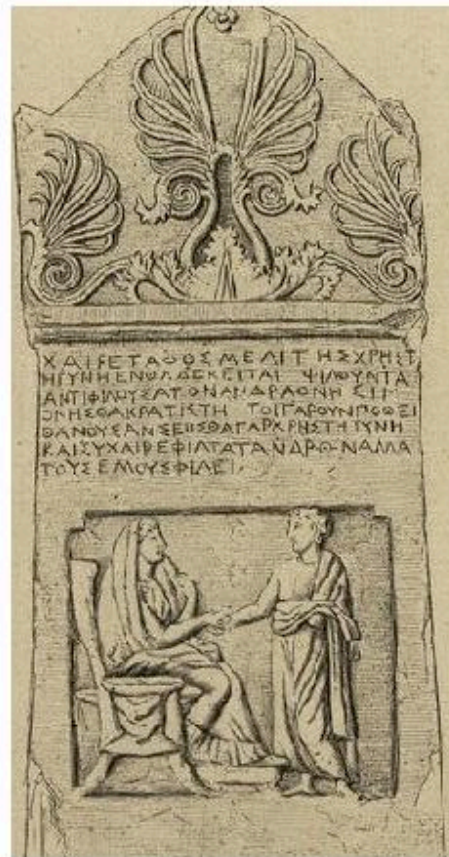 ΧΑΙΡΕΤΑΦΟΣΜΕΛΙΤΗΣΧΡΗΣΤ
ΗΓΥΝΗΕΝΘΑΔΕΚΕΙΤΑΙ ΦΙΛΟΥΝΤΑ
ΑΝΤΙΦΙΛΟΥΣΑΤΟΝΑΝΔΡΑΟΝΗΣΙΜ
ΟΝΗΣΘΑΚΡΑΤΙΣΤΗ ΤΟΙΓΑΡΟΥΝΠΟΘΕΙ
ΘΑΝΟΥΣΑΝΣΕΗΣΘΑΓΑΡΧΡΗΣΤΗΓΥΝΗ
ΚΑΙΣΥΧΑΙΡΕΦΙΛΤΑΤΑΝΔΡΩΝΑΛΛΑ
ΤΟΥΣΕΜΟΥΣΦΙΛΕΙ